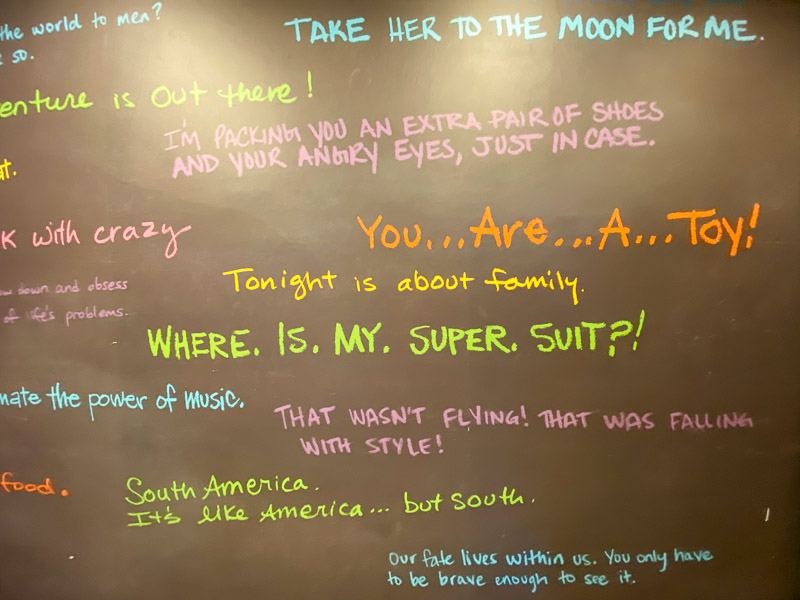 the world to men?
so.
TAKE HER TO THE MOON FOR ME.
enture is out there!
I'M PACKING YOU AN EXTRA PAIR OF SHOES
AND YOUR ANGRY EYES, JUST IN CASE.
at.
k with crazy
You...Are...A...Toy!
Tonight is about family.
ow down and obsess
of life's problems.
WHERE. IS. MY. SUPER. SUIT?!
nate the power of music.
THAT WASN'T FLYING! THAT WAS FALLING
WITH STYLE!
food.
South America.
It's like America... but south.
Our fate lives within us. You only have
to be brave enough to see it.